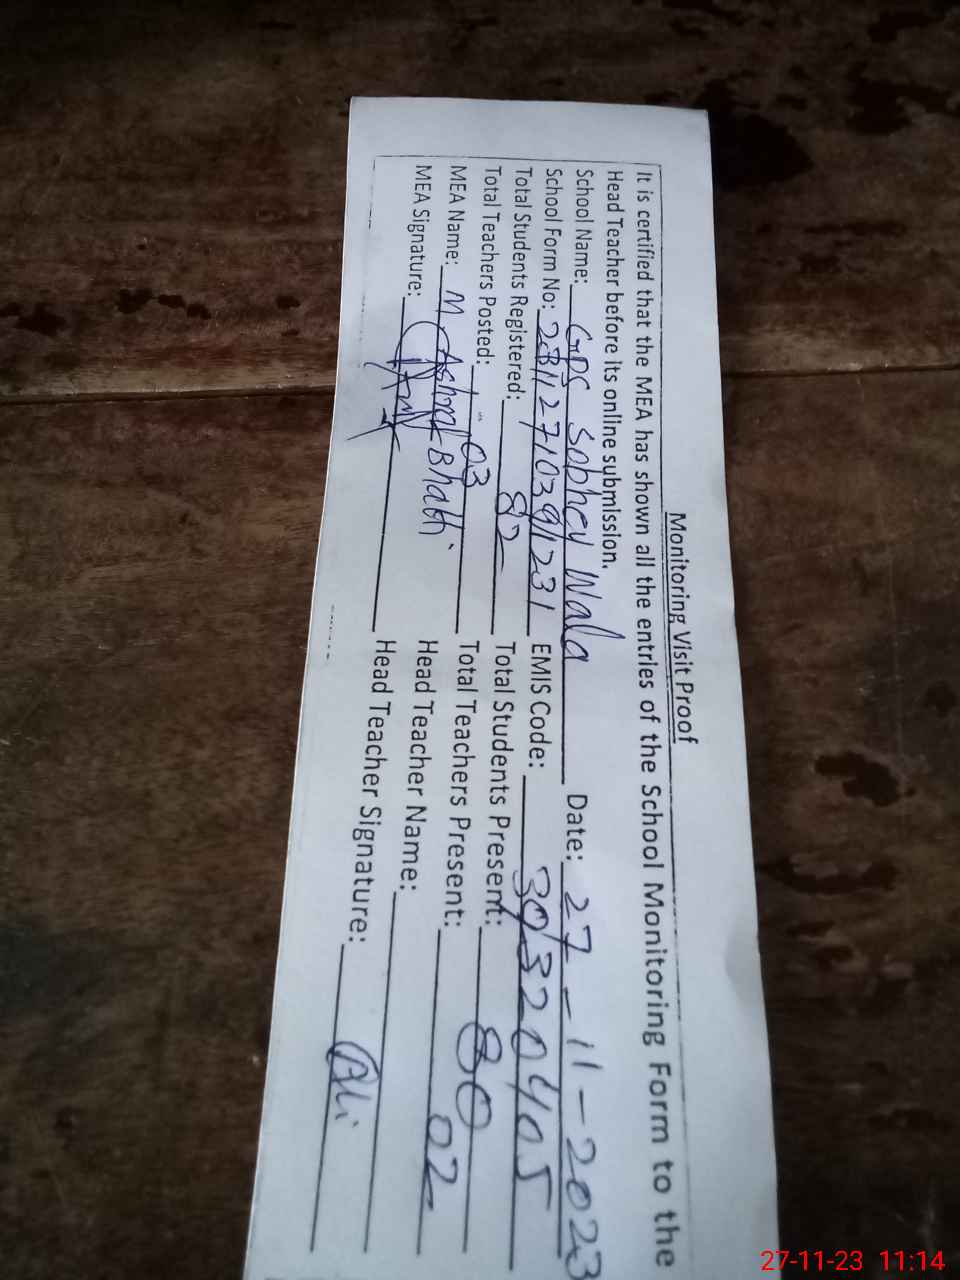 Monitoring Visit Proof
It is certified that the MEA has shown all the entries of the School Monitoring Form to the
Head Teacher before its online submission.
School Name: GPS Sobhey Wala Date: 27-11-2023
School Form No: 23112710391231 EMIS Code: 39320405
Total Students Registered: 82 Total Students Present: 80
Total Teachers Posted: 03 Total Teachers Present: 02
MEA Name: M Ashraf Bhatti Head Teacher Name:
MEA Signature: Head Teacher Signature: Ali
27-11-23 11:14